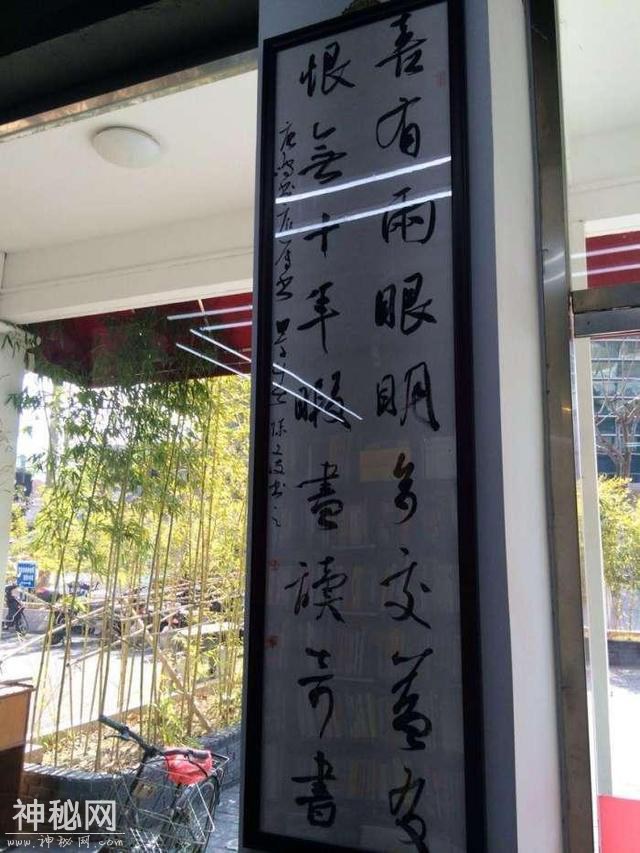 喜有兩眼明多交益友
恨無十年暇盡讀奇書
神秘网
www.神秘网.com